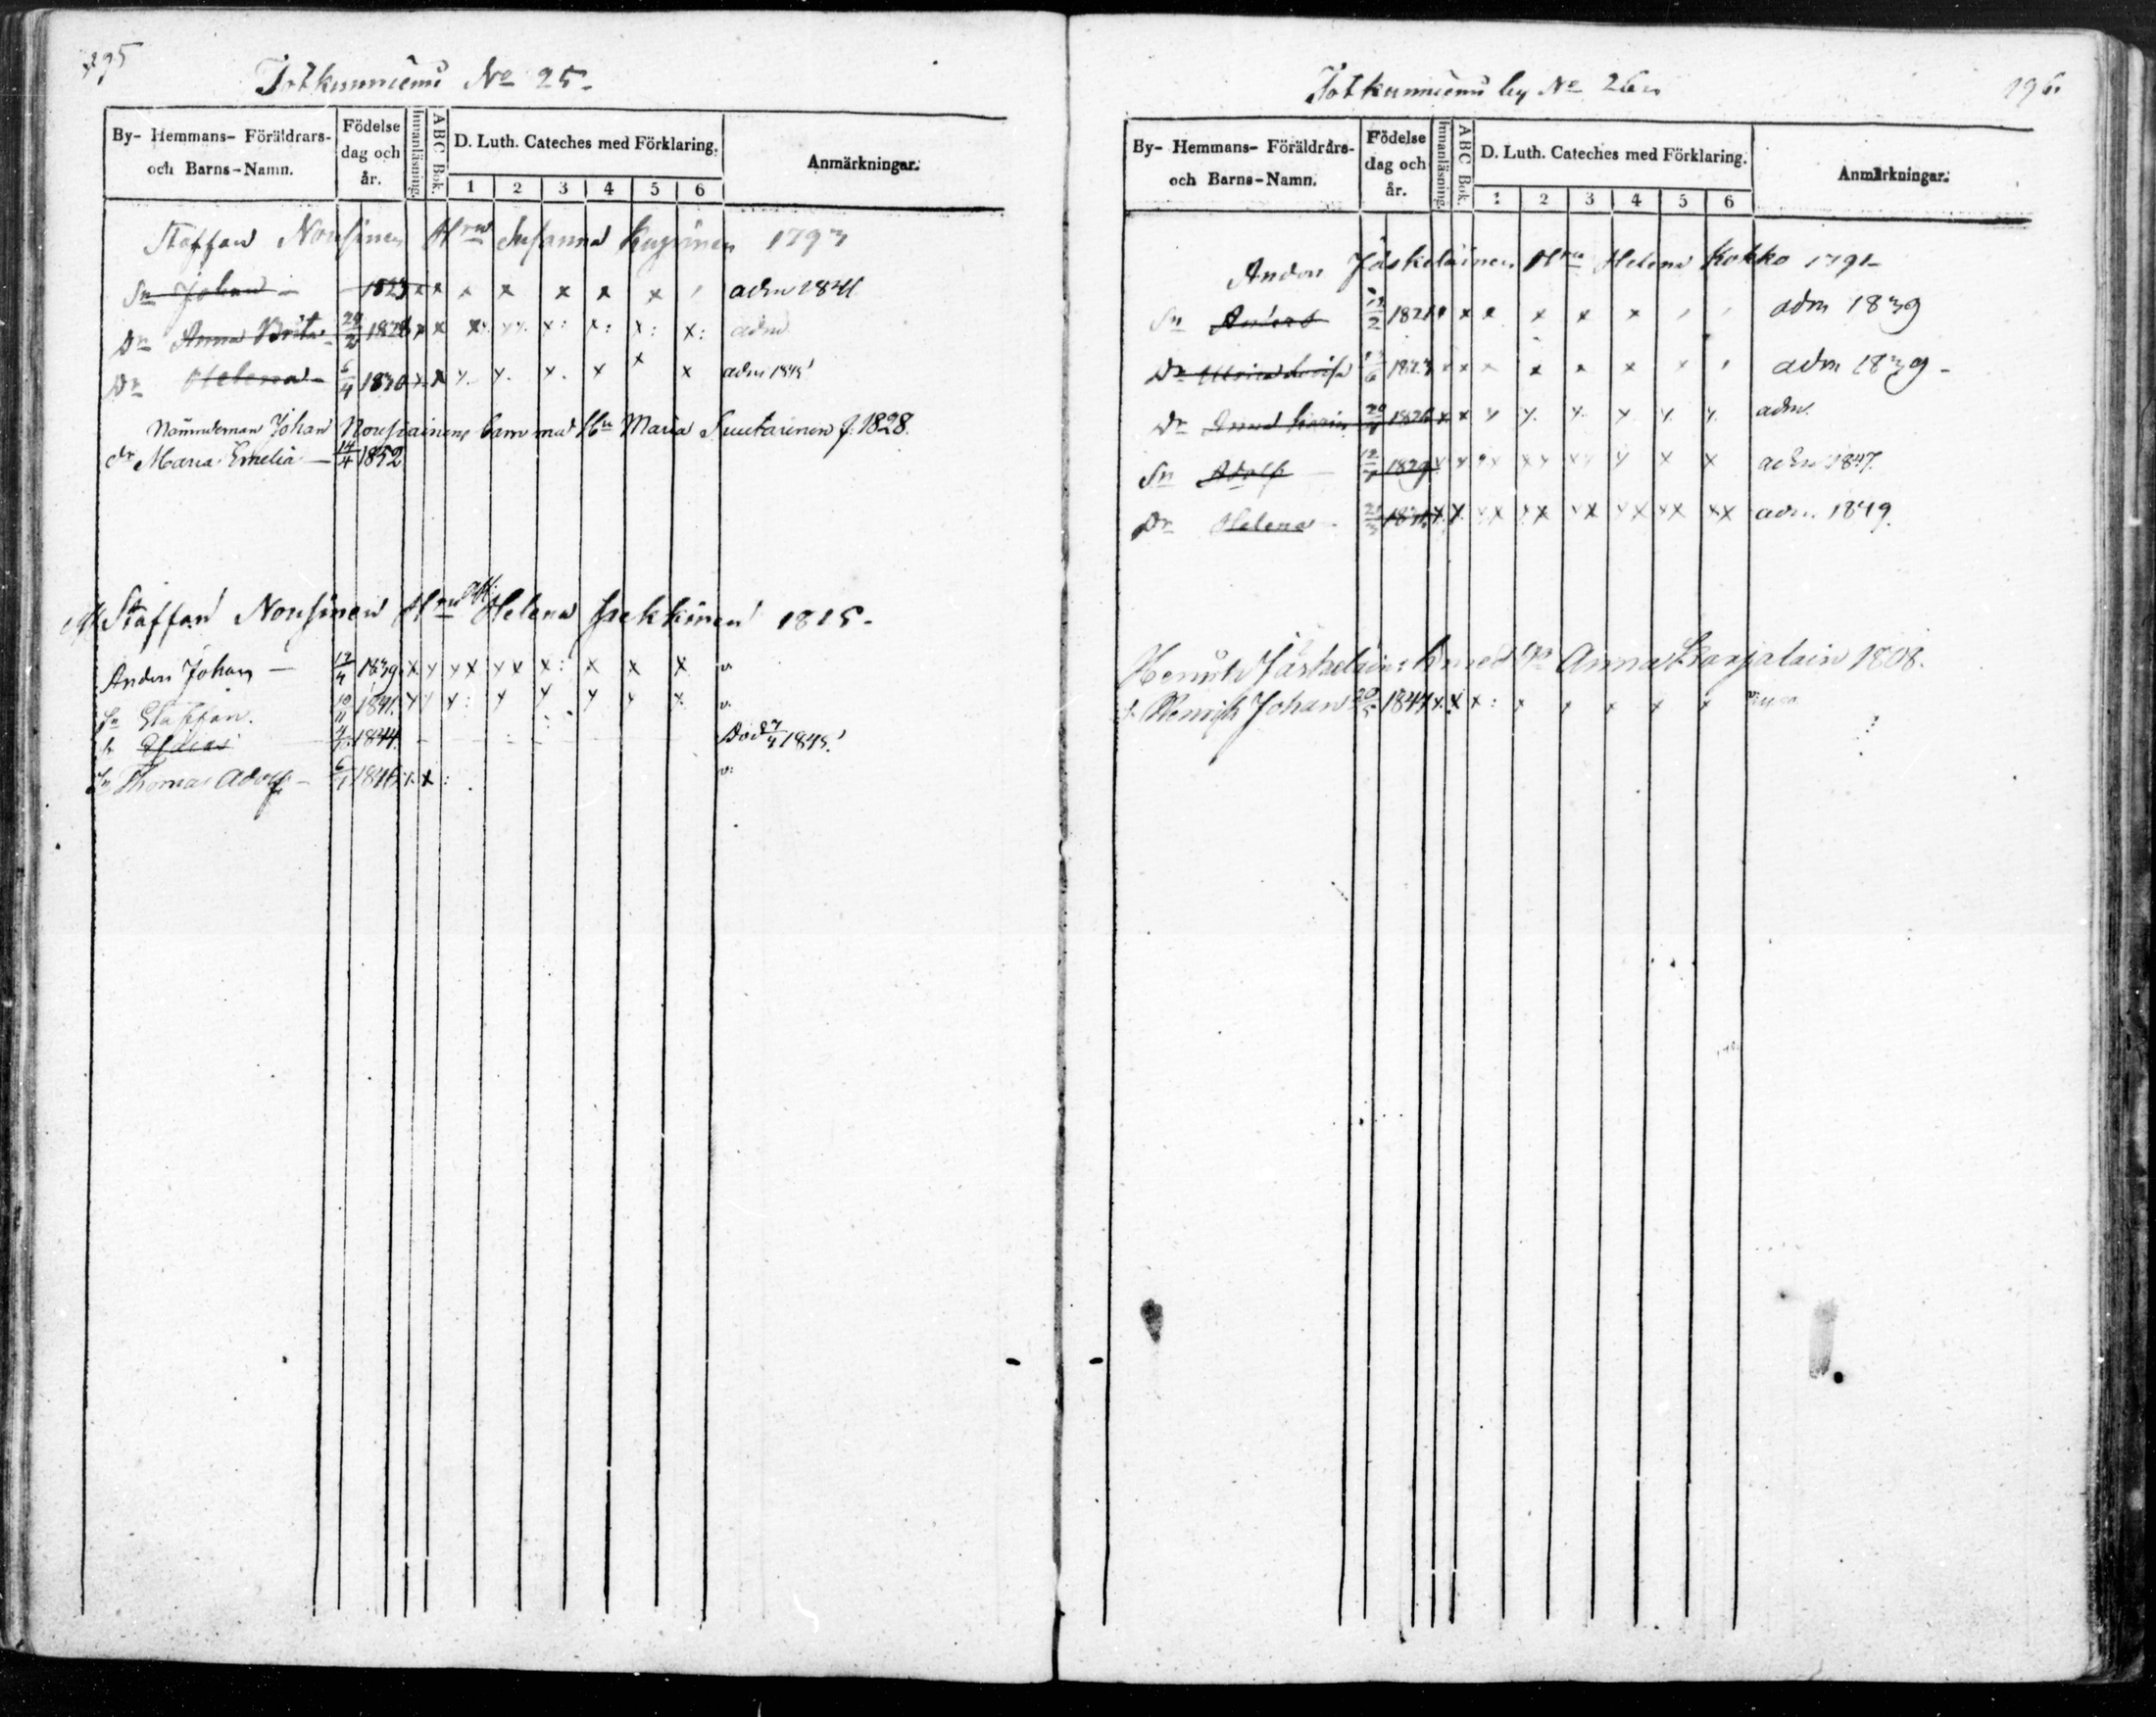 195
Jotkunniemi No 25-
By- Hemmans- Föräldrars- och Barns-Namn.
Födelse dag och år.
Innanläsning.
ABC Bok.
D. Luth. Cateches med Förklaring.
1 2 3 4 5 6
Anmärkningar.
Staffan Nousinen Hru Susanna 1793
Sn Johan - 1823 x x x x x x x adm 1841
Dr Anna Brita 29/2 1828 x x x: x: x: x: x: x: adm
Dr Helena - 6/4 1830 x x x. x. x. x x x adm 1845
Nämndeman Johan Nousiainens barn med Hu Maria Suutarinen f. 1828.
dr Maria Emelia - 14/4 1852
Staffan Nousinen Hru Helena 1815-
Anders Johan - 1839 x x x x x x x: x x x v.
Sn Staffan. 10/11 1841. x x x: x x x x x. v.
1844. Död 1845.
Sn Thomas Adolf - 6/1 1846 x x: v:
Jotkunniemi by No 26
196.
By- Hemmans- Föräldrars- och Barns-Namn.
Födelse dag och år.
Innanläsning.
ABC Bok.
D. Luth. Cateches med Förklaring.
1 2 3 4 5 6
Anmärkningar.
Anders Jäskeläinen Hru Helena Kokko 1791-
Sn Anders 1821 x x x x x adm 1839
Dr Ulrica Lovisa 1823 x x x x x x x adm 1839-
Dr Anna Karin 1826 x x x x. x. x x. x. adm.
Sn Adolf - 12/7 1829 x x x x x x x x x x x adm 1847.
Dr Helena - 21/3 x x x x x x x x x x x x x x adm. 1849.
Henrik Jäskeläin: med Anna Karjalain 1808.
S. Henrik Johan 20/5 1844 x x x: x x x x x